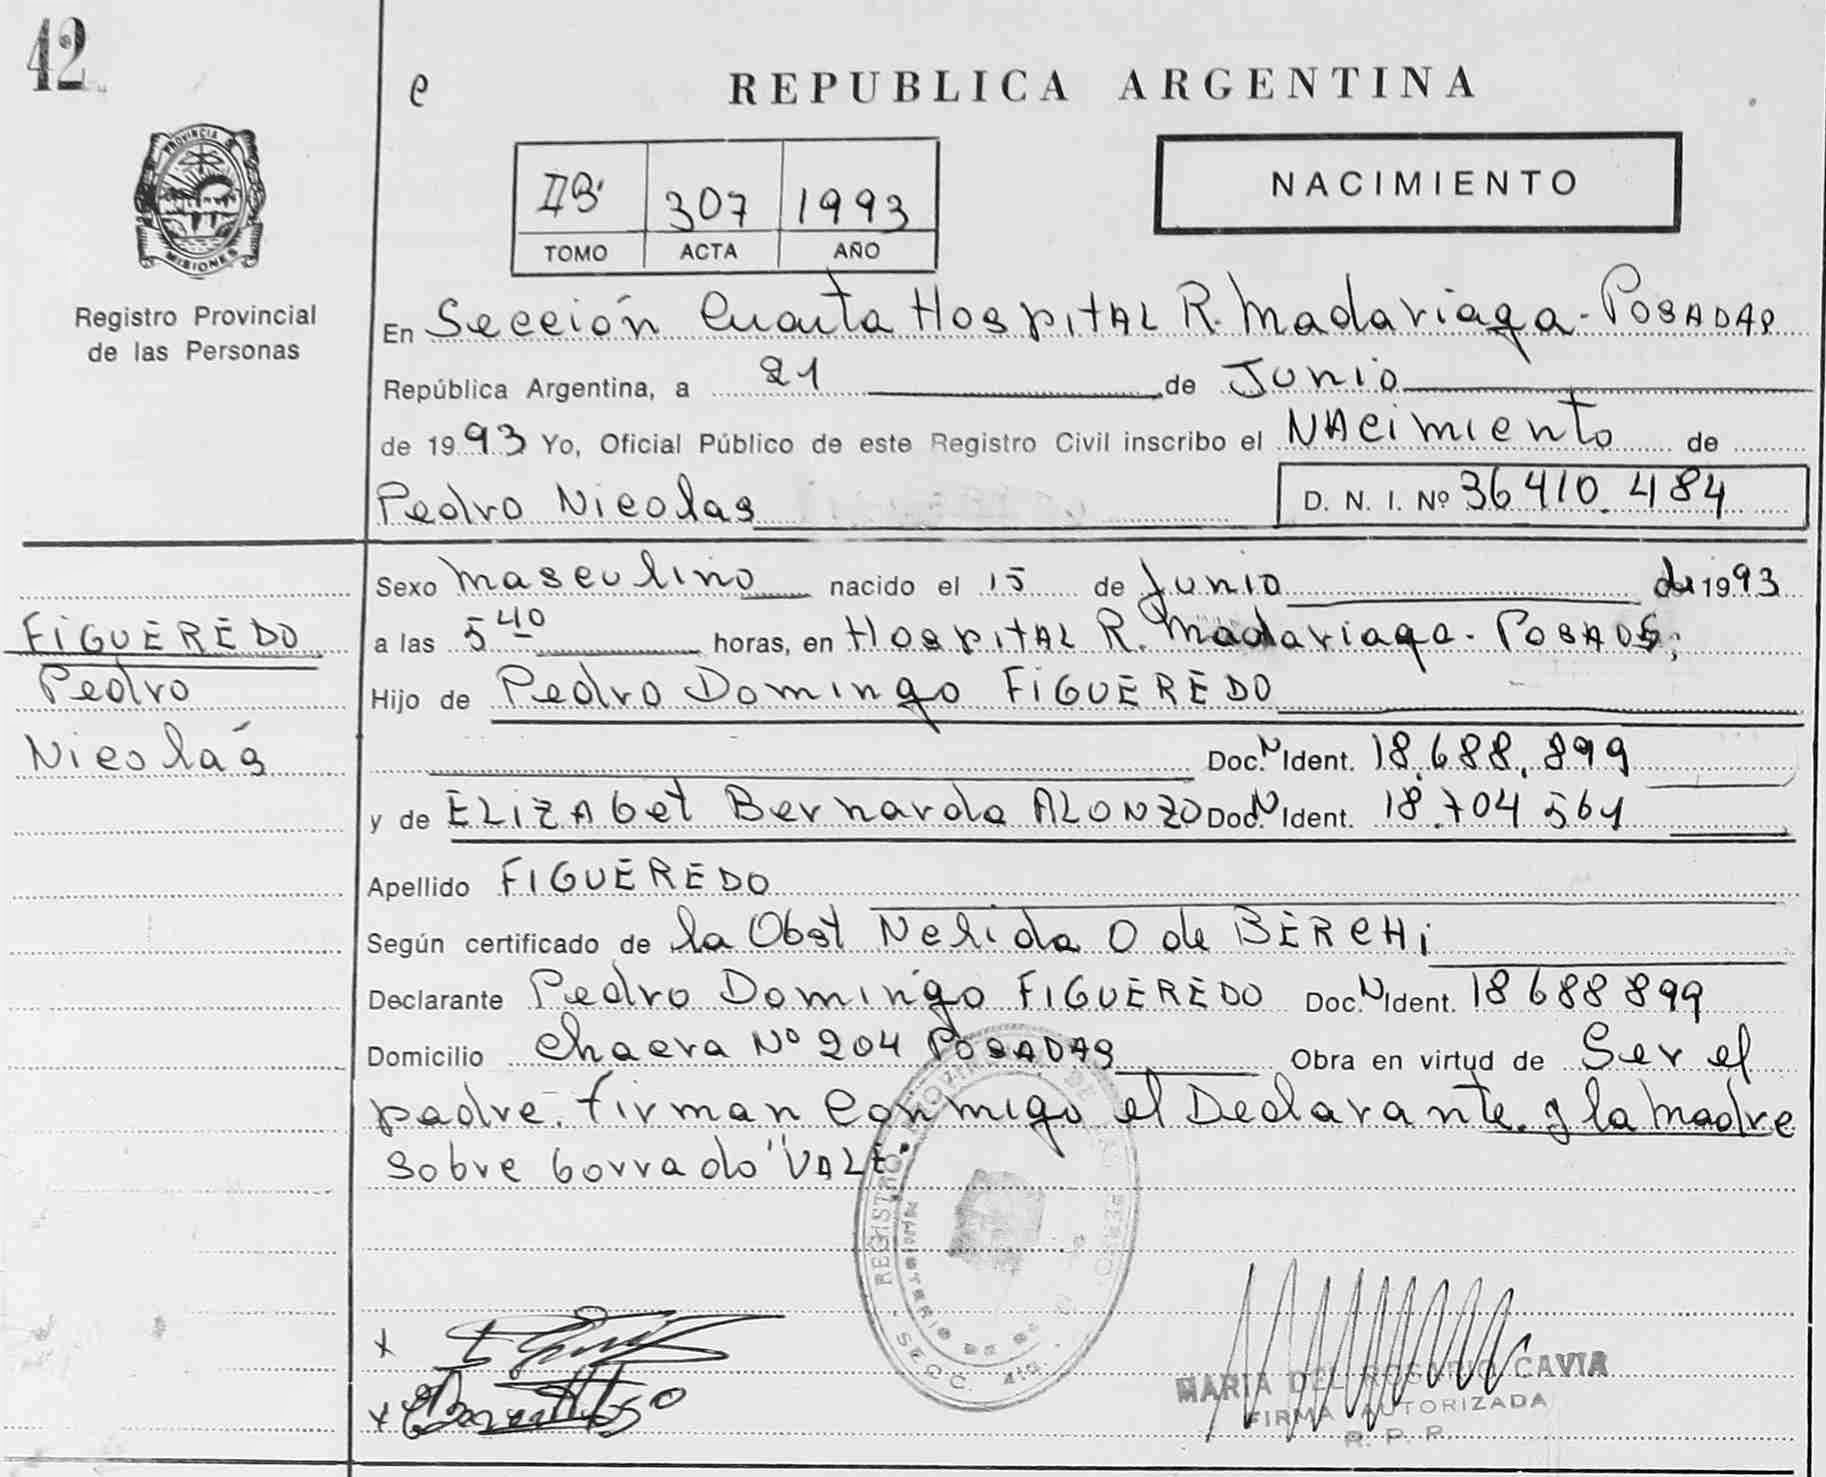 42
e
REPUBLICA ARGENTINA
PROVINCIA
MISIONES
Registro Provincial
de las Personas
IIB' 307 1993
TOMO ACTA AÑO
NACIMIENTO
En Sección Cuarta Hospital R. Madariaga - Posadas
República Argentina, a 21 de Junio
de 1993 Yo, Oficial Público de este Registro Civil inscribo el NAcimiento de
Pedro Nicolas D. N. I. Nº 36 410. 484
Sexo masculino nacido el 15 de Junio de 1993
a las 5 40 horas, en Hospital R. Madariaga. Posadas;
Hijo de Pedro Domingo FIGUEREDO
Doc. N Ident. 18.688.899
y de ELIZAbet Bernarda ALONZO Doc. N Ident. 18.704 561
Apellido FIGUEREDO
Según certificado de la Obst Nelida O de BERCHi
Declarante Pedro Domingo FIGUEREDO Doc. N Ident. 18 688 899
Domicilio Chacra Nº 204 POSADAS Obra en virtud de Ser el
padre. firman conmigo el Declarante y la madre
sobre borrado "VALE"
FIGUEREDO
Pedro
Nicolás
REGISTRO PROVINCIAL DE LAS
MINISTERIO DE GO
SECC. 4ta.
x
x
MARIA DEL ROSARIO CAVIA
FIRMA AUTORIZADA
R. P. P.